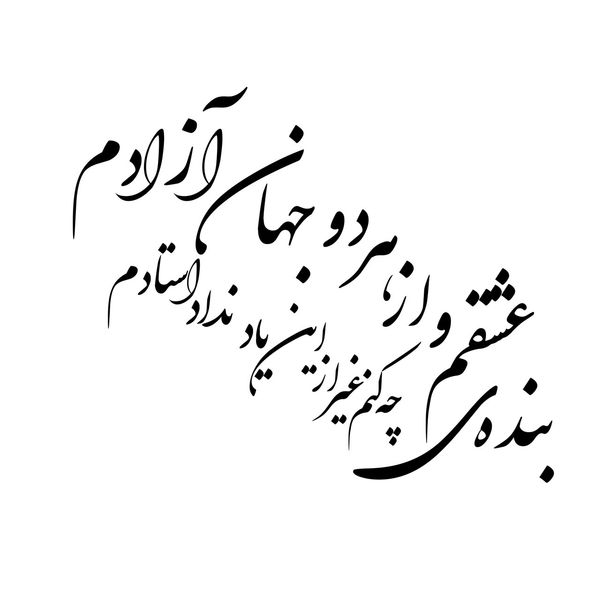 بنده‌ی عشقم و از هر دو جهان آزادم
چه کنم غیر از این یاد نداد استادم